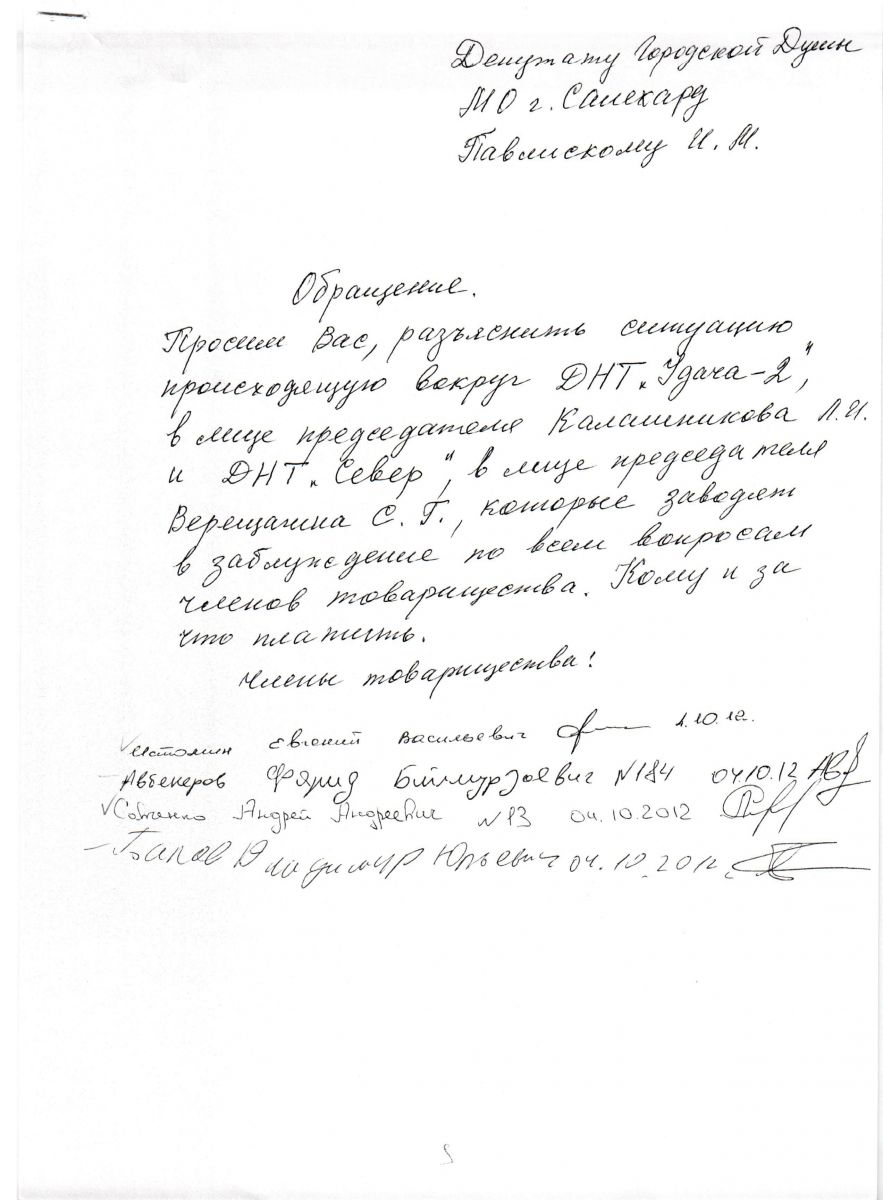 Депутату Городской Думы
МО г. Салехард
Павлискому И. М.
Обращение.
Просим Вас, разъяснить ситуацию
происходящую вокруг ДНТ „Удача-2",
в лице председателя Калашникова Л.И.
и ДНТ „Север", в лице председателя
Верещагина С. Г., которые заводят
в заблуждение по всем вопросам
членов товарищества. Кому и за
что платить.
Члены товарищества!
Истомин Евгений Васильевич 1.10.12.
Авбекеров Фярид Биймурзаевич N184 04.10.12
Андрей Андреевич N 04.10.2012
Владимир Юрьевич 04.10.2012.